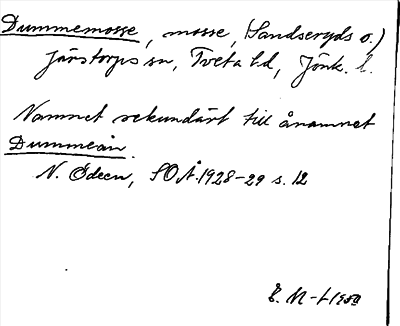 Dummemosse, mosse, (Sandseryds o.)
Järstorps sn, Tveta hd, Jönk. l.
Namnet sekundärt till ånamnet
Dummeån.
N. Ödeen, SOÅ 1928-29 s. 12